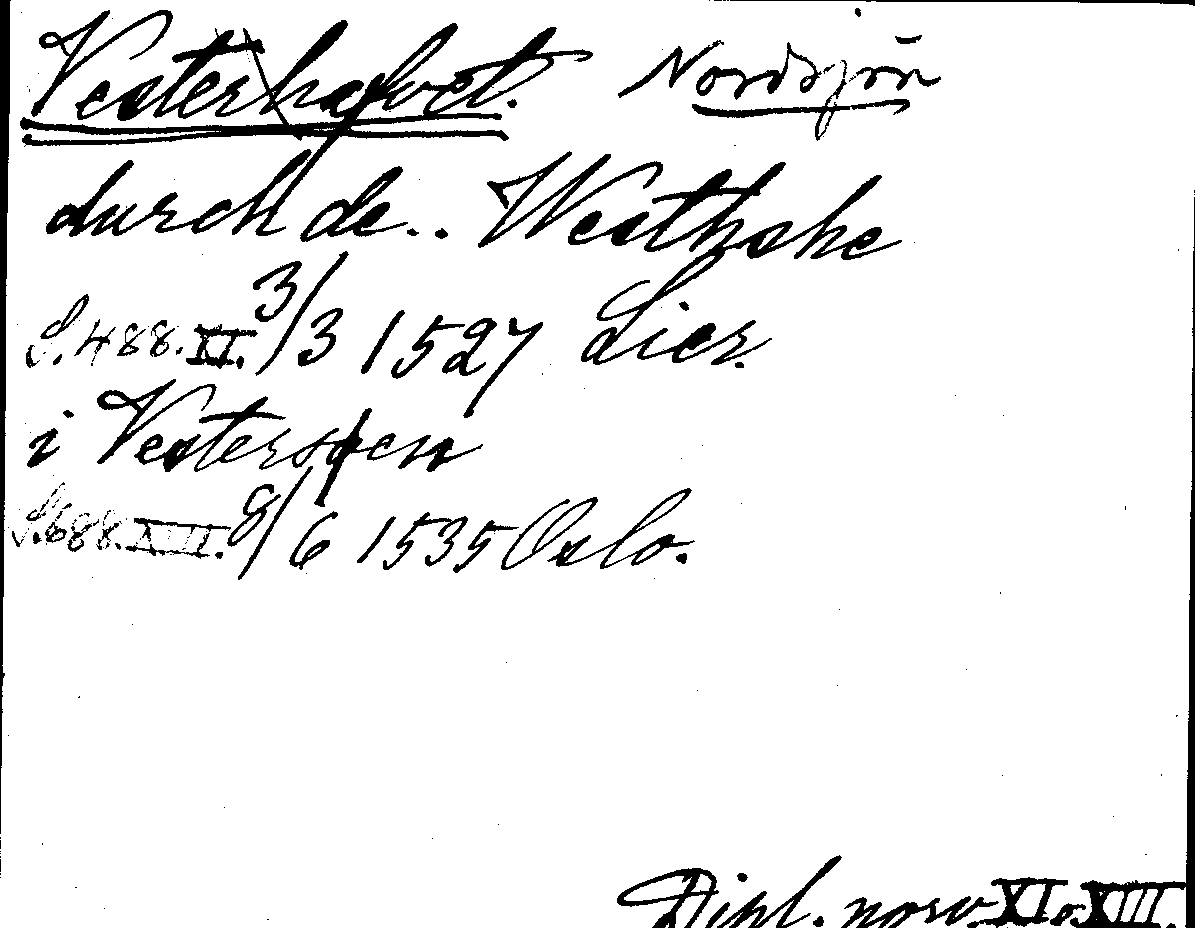 Vesterhafvet. Nordsjön
durch de.. Westhske
S. 488. XI. 3/3 1527 Lier.
i Vestersøen
S. 688. XIII. 8/6 1535 Oslo.
Dipl. norv. XI o. XIII.